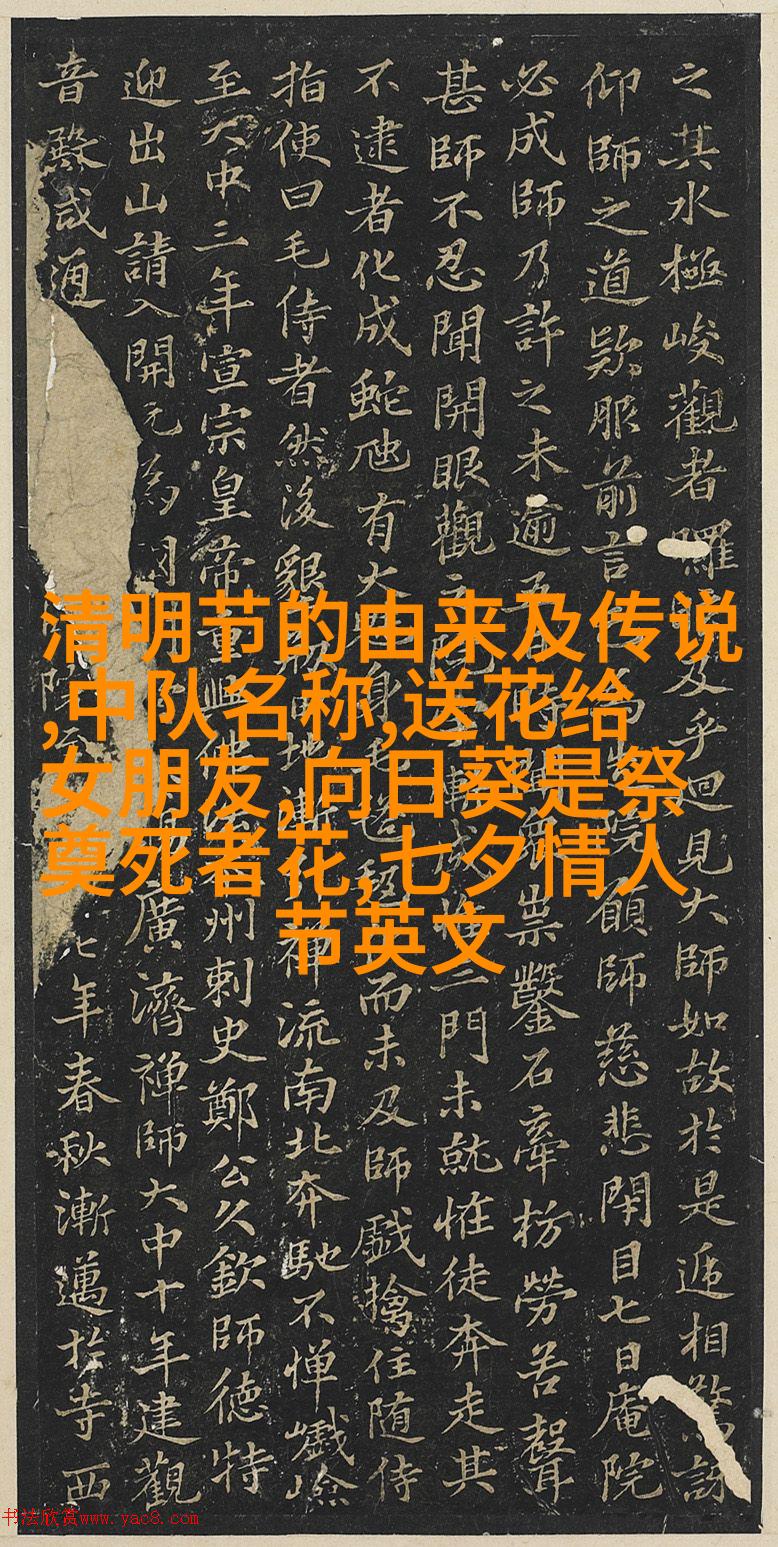 清明节的由来及传说
,中队名称,送花给
女朋友,向日葵是祭
奠死者花,七夕情人
节英文
之其水極峻觀者羅及乎迴見大師如故於是遞相驚訝
仰師之道欵服前言院願師慈悲閉目七日庵院
必成師乃許之未逾祟鑿石牽枋勞苦聲
甚師不忍聞開眼觀成惟二門未就恠徒奔走其
不逮者化成蛇虺有大身毛而未及師戲擒住随侍
指使曰毛侍者然後懇地漸禅流南北奔馳不憚巇嶮
至大中三年宣宗皇帝重興州刺史鄭公久欽師德特
迎出山請入開元為廣濟禅師大中十年建觀
音殿咸通七年春秋漸邁於寺西
书法欣赏www.yac8.com